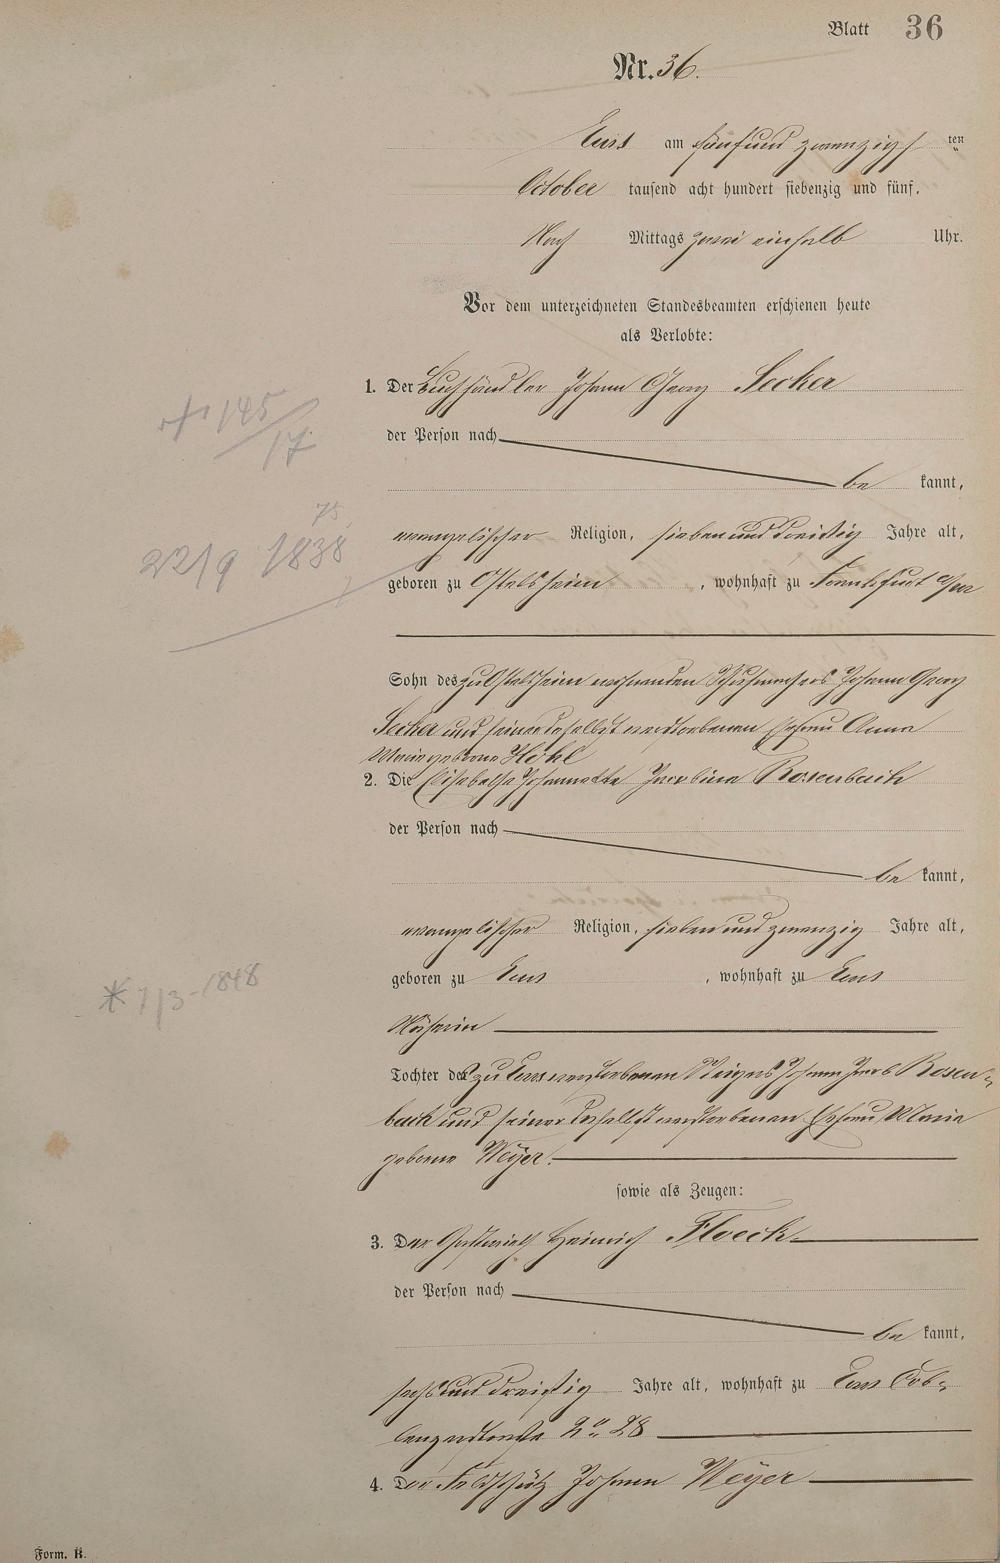 Blatt 36
Nr. 36.
Ems am fünfundzwanzigsten
October tausend acht hundert siebenzig und fünf,
Nach Mittags zwei einhalb Uhr.
Vor dem unterzeichneten Standesbeamten erschienen heute
als Verlobte:
1. Der Buchhändler Johann Georg Secker
der Person nach
be kannt,
evangelischer Religion, siebenunddreißig Jahre alt,
geboren zu Ostelsheim, wohnhaft zu Frankfurt
Sohn des zu Ostelsheim wohnenden Schuhmachers Johann Georg
Secker und seiner daselbst verstorbenen Ehefrau Anna
Maria geborne Höhl
2. Die Elisabetha Johannette Jacobina Rosenbach
der Person nach
be kannt,
evangelischer Religion, siebenundzwanzig Jahre alt,
geboren zu Ems, wohnhaft zu Ems
Näherin
Tochter des zu Ems verstorbenen Steigers Johann Jacob Rosen-
bach und seiner daselbst verstorbenen Ehefrau Maria
geborne Weyer.
sowie als Zeugen:
3. Der Gastwirth Heinrich Floeck
der Person nach
be kannt,
sechsunddreißig Jahre alt, wohnhaft zu Ems Cob-
lenzerstraße No. 28
4. Der Feldschütz Johann Weyer
145
17
75
22/9 1838
* 7/3-1848
Form. B.